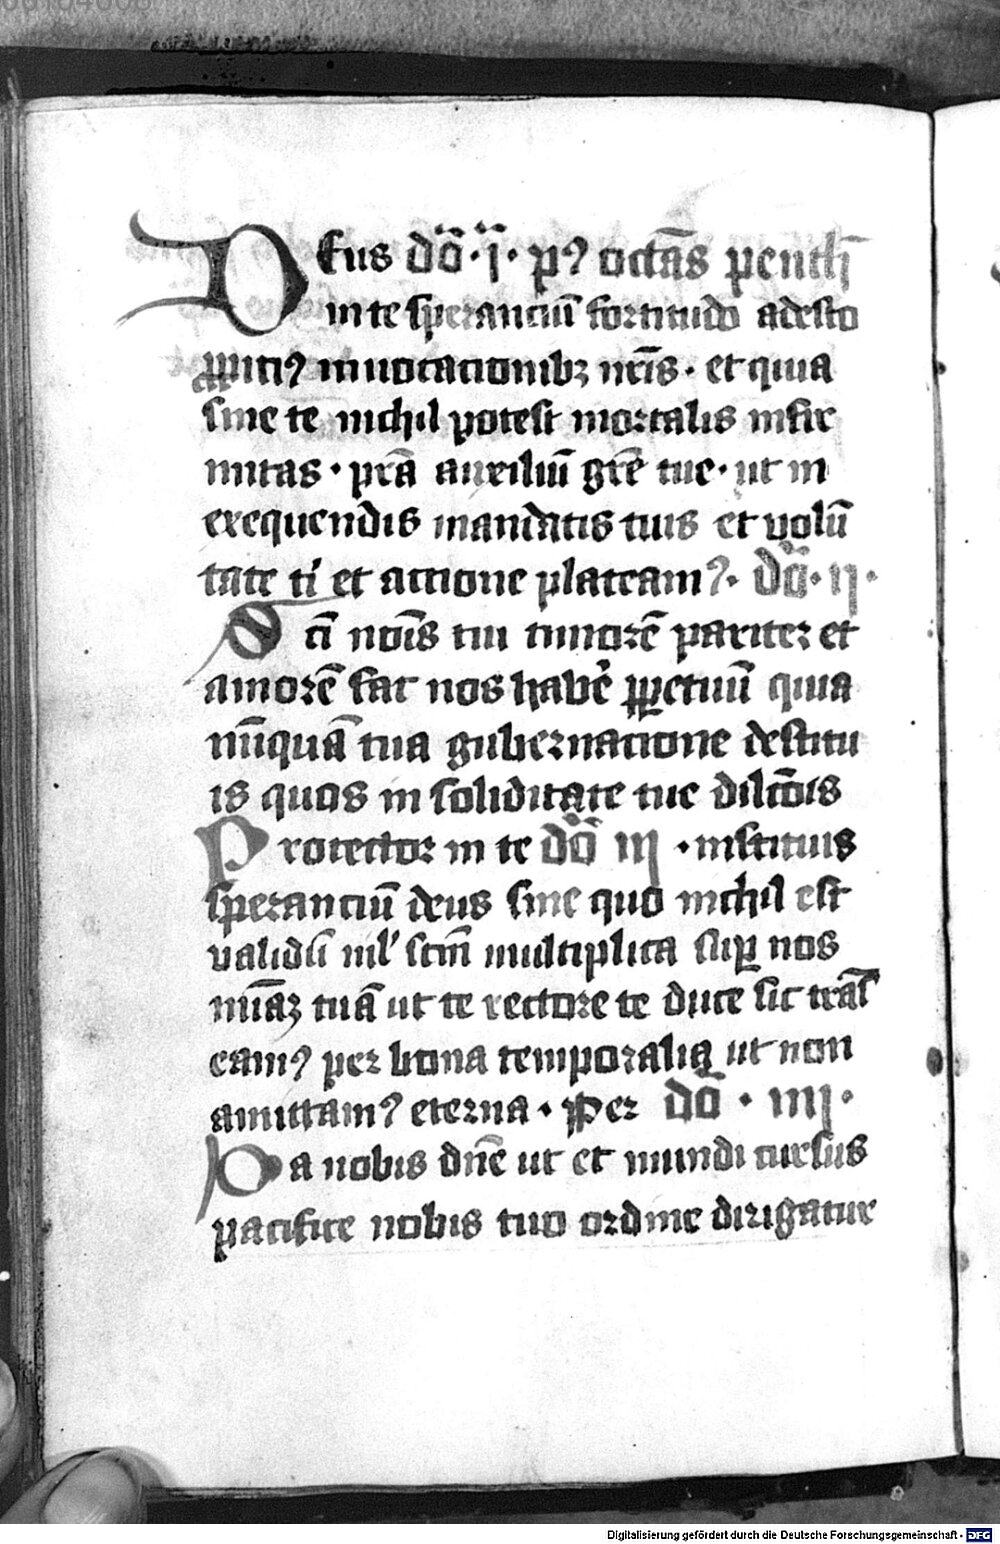 Deus dõ·ı̃· pꝰ octãs penth̃
in te speranciũ fortitudo adesto
ꝓpiciꝰ inuocacionibꝫ nr̃is · et quia
sine te nichil potest mortalis infir
mitas · pr̃a auxiliũ gr̃e tue · ut in
exequendis mandatis tuis et uolũ
tate ti᷑ et actione placeamꝰ· dõ· ıı·
Sci nõis tui timorẽ pariter et
amorẽ fac nos habe᷑ ꝑpetuũ quia
nũquã tua gubernacione destitu
is quos in soliditate tue dilcõis
Protector in te dõ ııı · instituis
speranciũ deus sine quo nichil est
ualidũ nil᷑ scm̃ multiplica suꝑ nos
mĩaꝫ tuã ut te rectore te duce sic trãs
eamꝰ per bona temporalia ut non
amittamꝰ eterna · Per dõ · ıııı·
Da nobis dñe ut et mundi cursus
pacifice nobis tuo ordine dirigatur
Digitalisierung gefördert durch die Deutsche Forschungsgemeinschaft - DFG